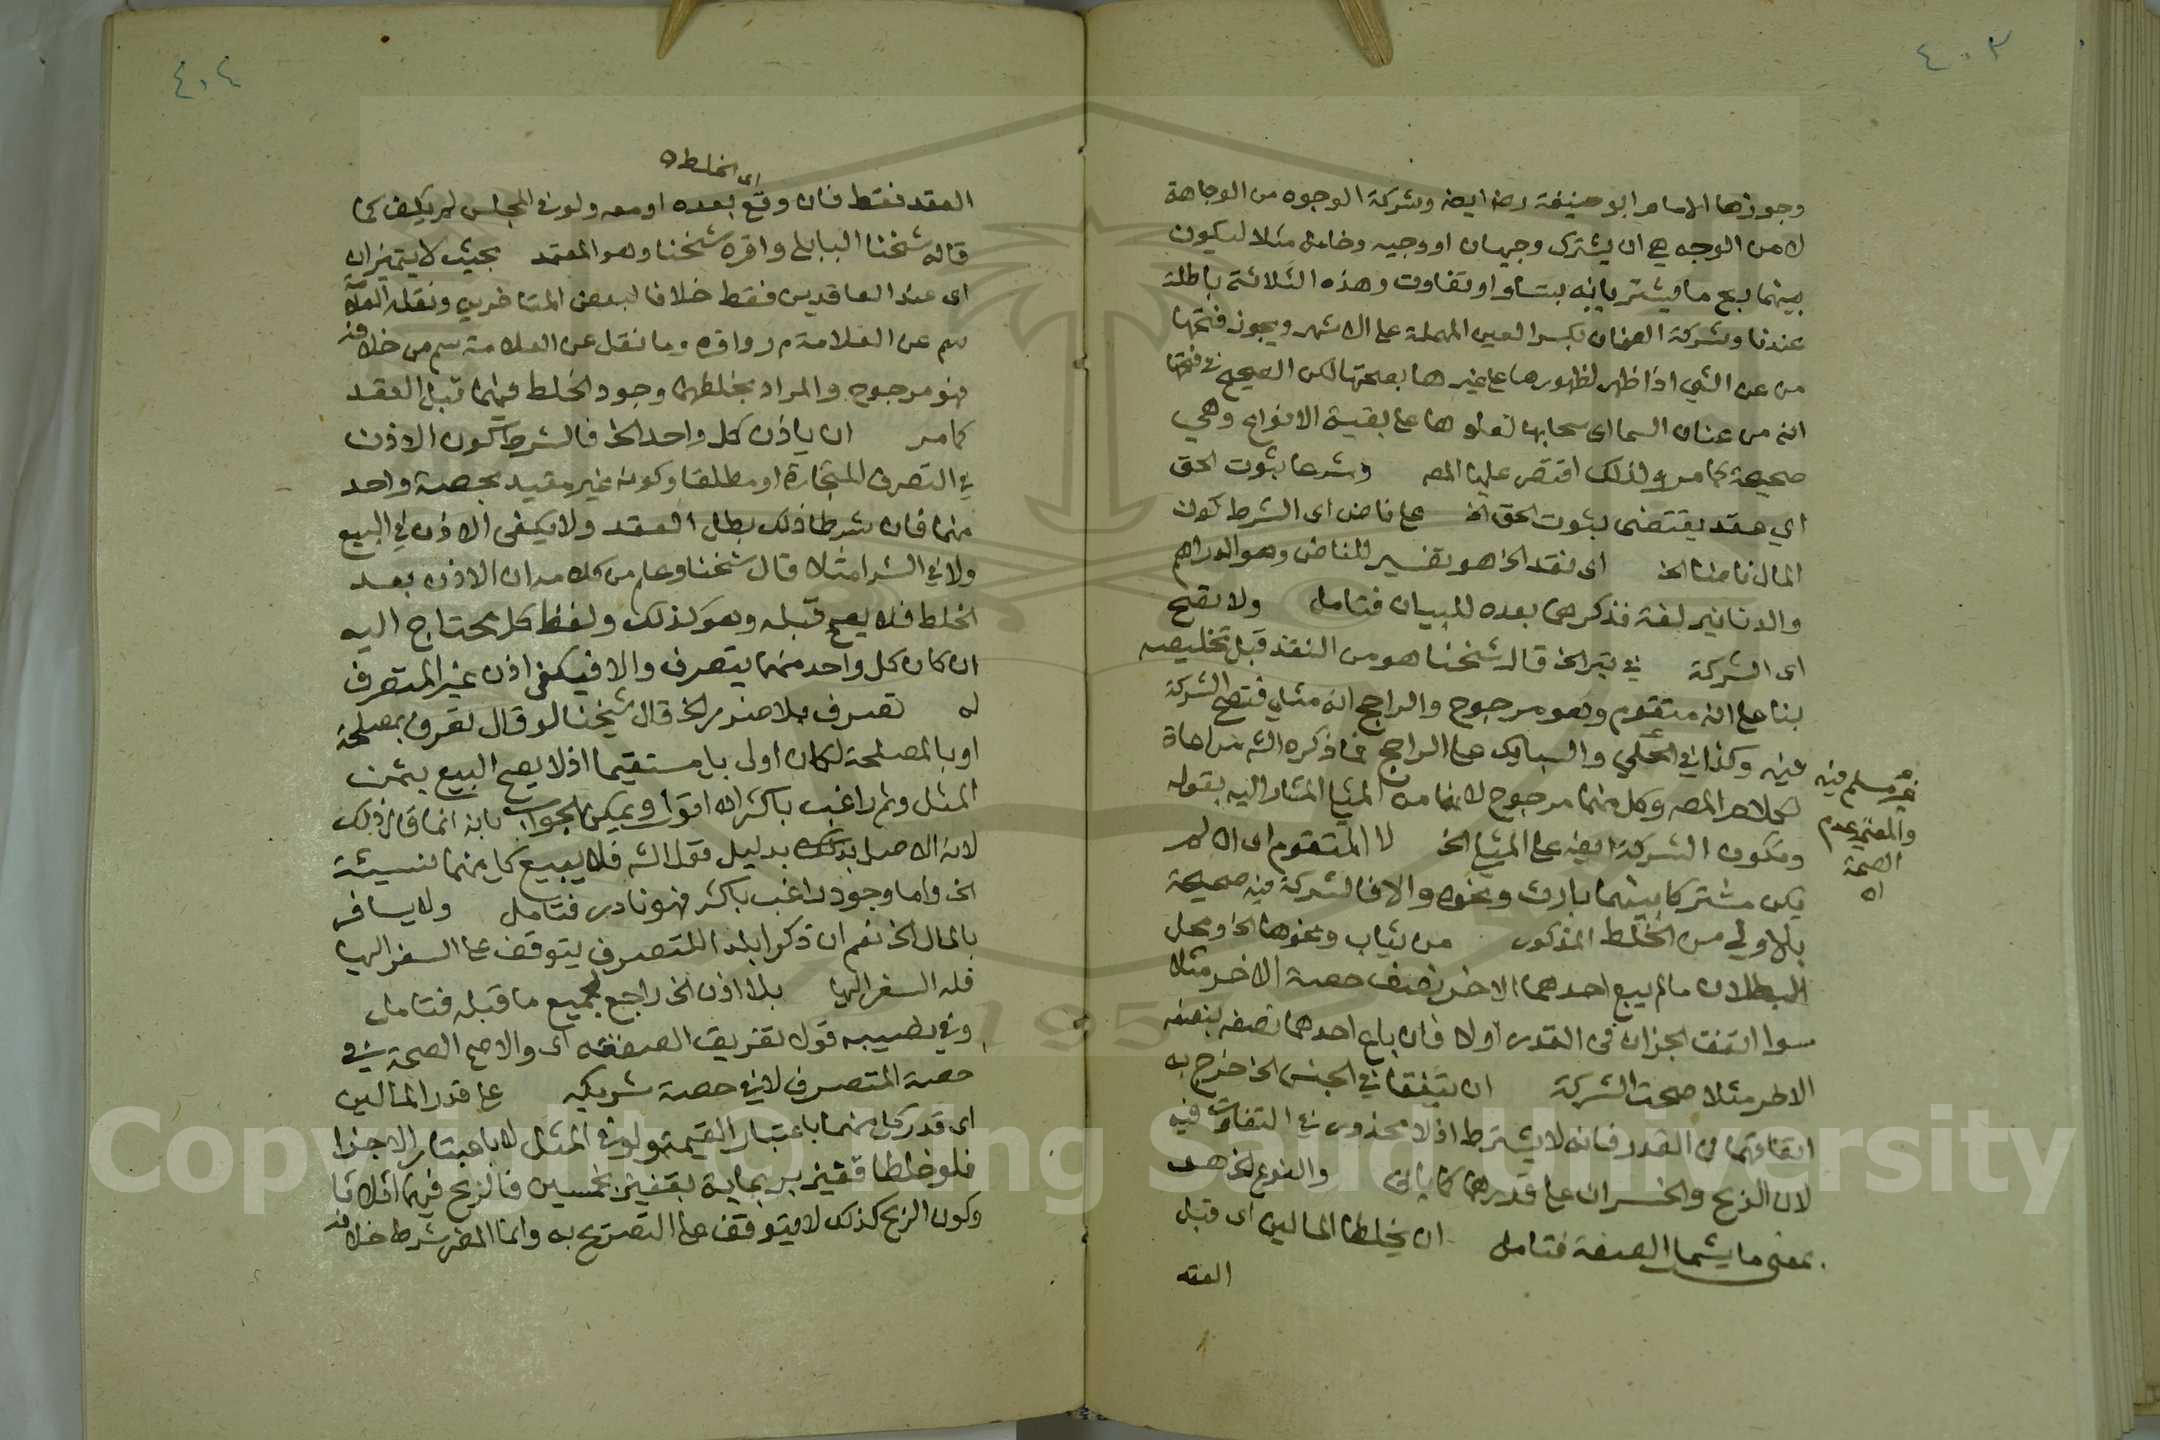 ٤٠٣
وجوزها الامام ابو حنيفة رضه ايضه وشركة الوجوه من الوجاهة
لا من الوجه هي ان يشترك وجيهان او وجيه وخامل مثلا ليكون
بينهما ربح ما يشتريانه بتساو او تفاوت وهذه الثلاثة باطلة
عندنا وشركة العنان بكسر العين المهملة على الاشهر ويجوز فتحها
من عن الشي اذا ظهر لظهورها على غيرها بصحتها لكن الصحيح في فتحها
انه من عنان السما اى سحابها لعلوها على بقية الانواع وهي
صحيحة كما مر ولذلك اقتصر عليها المصه وشرعا بثوت الحق
اي عقد يقتضى بثوت الحق الخ على ناض اى الشرط كون
المال ناضا الخ اى نقد الخ هو تفسير للناض وهو الدراهم
والدنانير لغة فذكرهما بعده للبيان فتامل ولا تصح
اى الشركة في تبر الخ قال شخنا هو من النقد قبل تخليصه
بنا على انه متقوم وهو مرجوح والراجح انه مثلي فتصح الشركة
فيه وكذا في الحلي والسبايك على الراجح فما ذكره الشه مراعاة
غير مسلم فيه
والمعتمد عدم
الصحة
اه
لكلام المصه وكل منهما مرجوح لانهما من المثلي المشار اليه بقوله
وتكون الشركة ايضه على المثلي الخ لا المتقوم اى ان لم
يكن مشتركا بينهما بارث ونحوه والا فالشركة فيه صحيحة
بالاولى من الخلط المذكور من ثياب ونحوها الخ ومحل
البطلان ما لم يبع احدهما الاخر نصف حصة الاخر مثلا
سوا اتفقت الجزان فى القدر اولا فان باع احدهما نصفه بنصف
الاخر مثلا صحت الشركة ان يتفقا في الجنس الخ خرج به
اتفاقهما فى القدر فانه لا يشترط اذ لا محذور في التفاوت فيه
لان الربح والخسران على قدرهما كما ياتى والنوع الخ هو
بمعنى ما يشمل الصفة فتامل ان يخلطا المالين اى قبل
العقد
٤٠٤
اى الخلط اه
العقد فقط فان وقع بعده او معه ولو في المجلس لم يكف كما
قاله شخنا البابلي واقره شخنا وهو المعتمد بحيث لا يتميزان
اى عند العاقدين فقط خلافا لبعض المتاخرين ونقله العلامة
سم عن العلامة م ر واقره وما نقل عن العلامة سم من خلافه
فهو مرجوح والمراد بخلطهما وجود الخلط فيهما قبل العقد
كما مر ان ياذن كل واحد الخ فالشرط كون الاذن
في التصرف للتجارة او مطلقا وكونه غير مقيد بحصة واحد
منهما فان شرطا ذلك بطل العقد ولا يكفى الاذن في البيع
ولا في الشرا مثلا قال شخنا وعلم من كلامه ان الاذن بعد
الخلط فلا يصح قبله وهو كذلك ولفظ كل محتاج اليه
ان كان كل واحد منهما يتصرف والا فيكفى اذن غير المتصرف
له تصرف بلا ضرر الخ قال شيخنا لو قال تصرف بمصلحة
او بالمصلحة لكان اولى مستقيما اذ لا يصح البيع بثمن
المثل وثم راغب باكثر اه اقول ويمكن الجواب بانه انما قال ذلك
لانه الاصل بدليل قول الشه فلا يبيع كل منهما نسيئة
الخ واما وجود راغب باكثر فهو نادر فتامل ولا يسافر
بالمال الخ نعم ان ذكرا بلدا للتصرف يتوقف على السفر اليها
فله السفر اليها بلا اذن الخ راجع لجميع ما قبله فتامل
وفي نصيبه قولا تفريق الصفقة اى والاصح الصحة في
حصة المتصرف لا في حصة شريكه على قدر المالين
اى قدر كل منهما باعتبار القيمة ولو في المثل لا باعتبار الاجزا
فلو خلطا قفيز بر بماية بقفيز بخمسين فالربح فيهما اثلاثا
وكون الربح كذلك لا يتوقف على التصريح به وانما المضر شرط خلافه